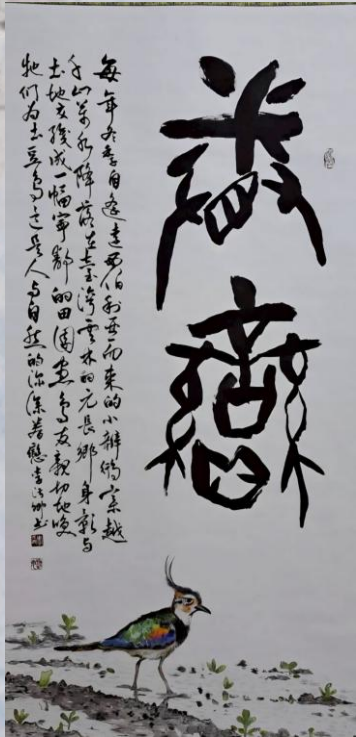 眷戀
每年冬季自遙遠西伯利亞而來的小辮鴴穿越
千山萬水降落在臺灣雲林的元長鄉身影與
土地交織成一幅寧靜的田園畫鳥友親切地喚
牠們為土豆鳥這是人與自然的深深眷戀 李 書